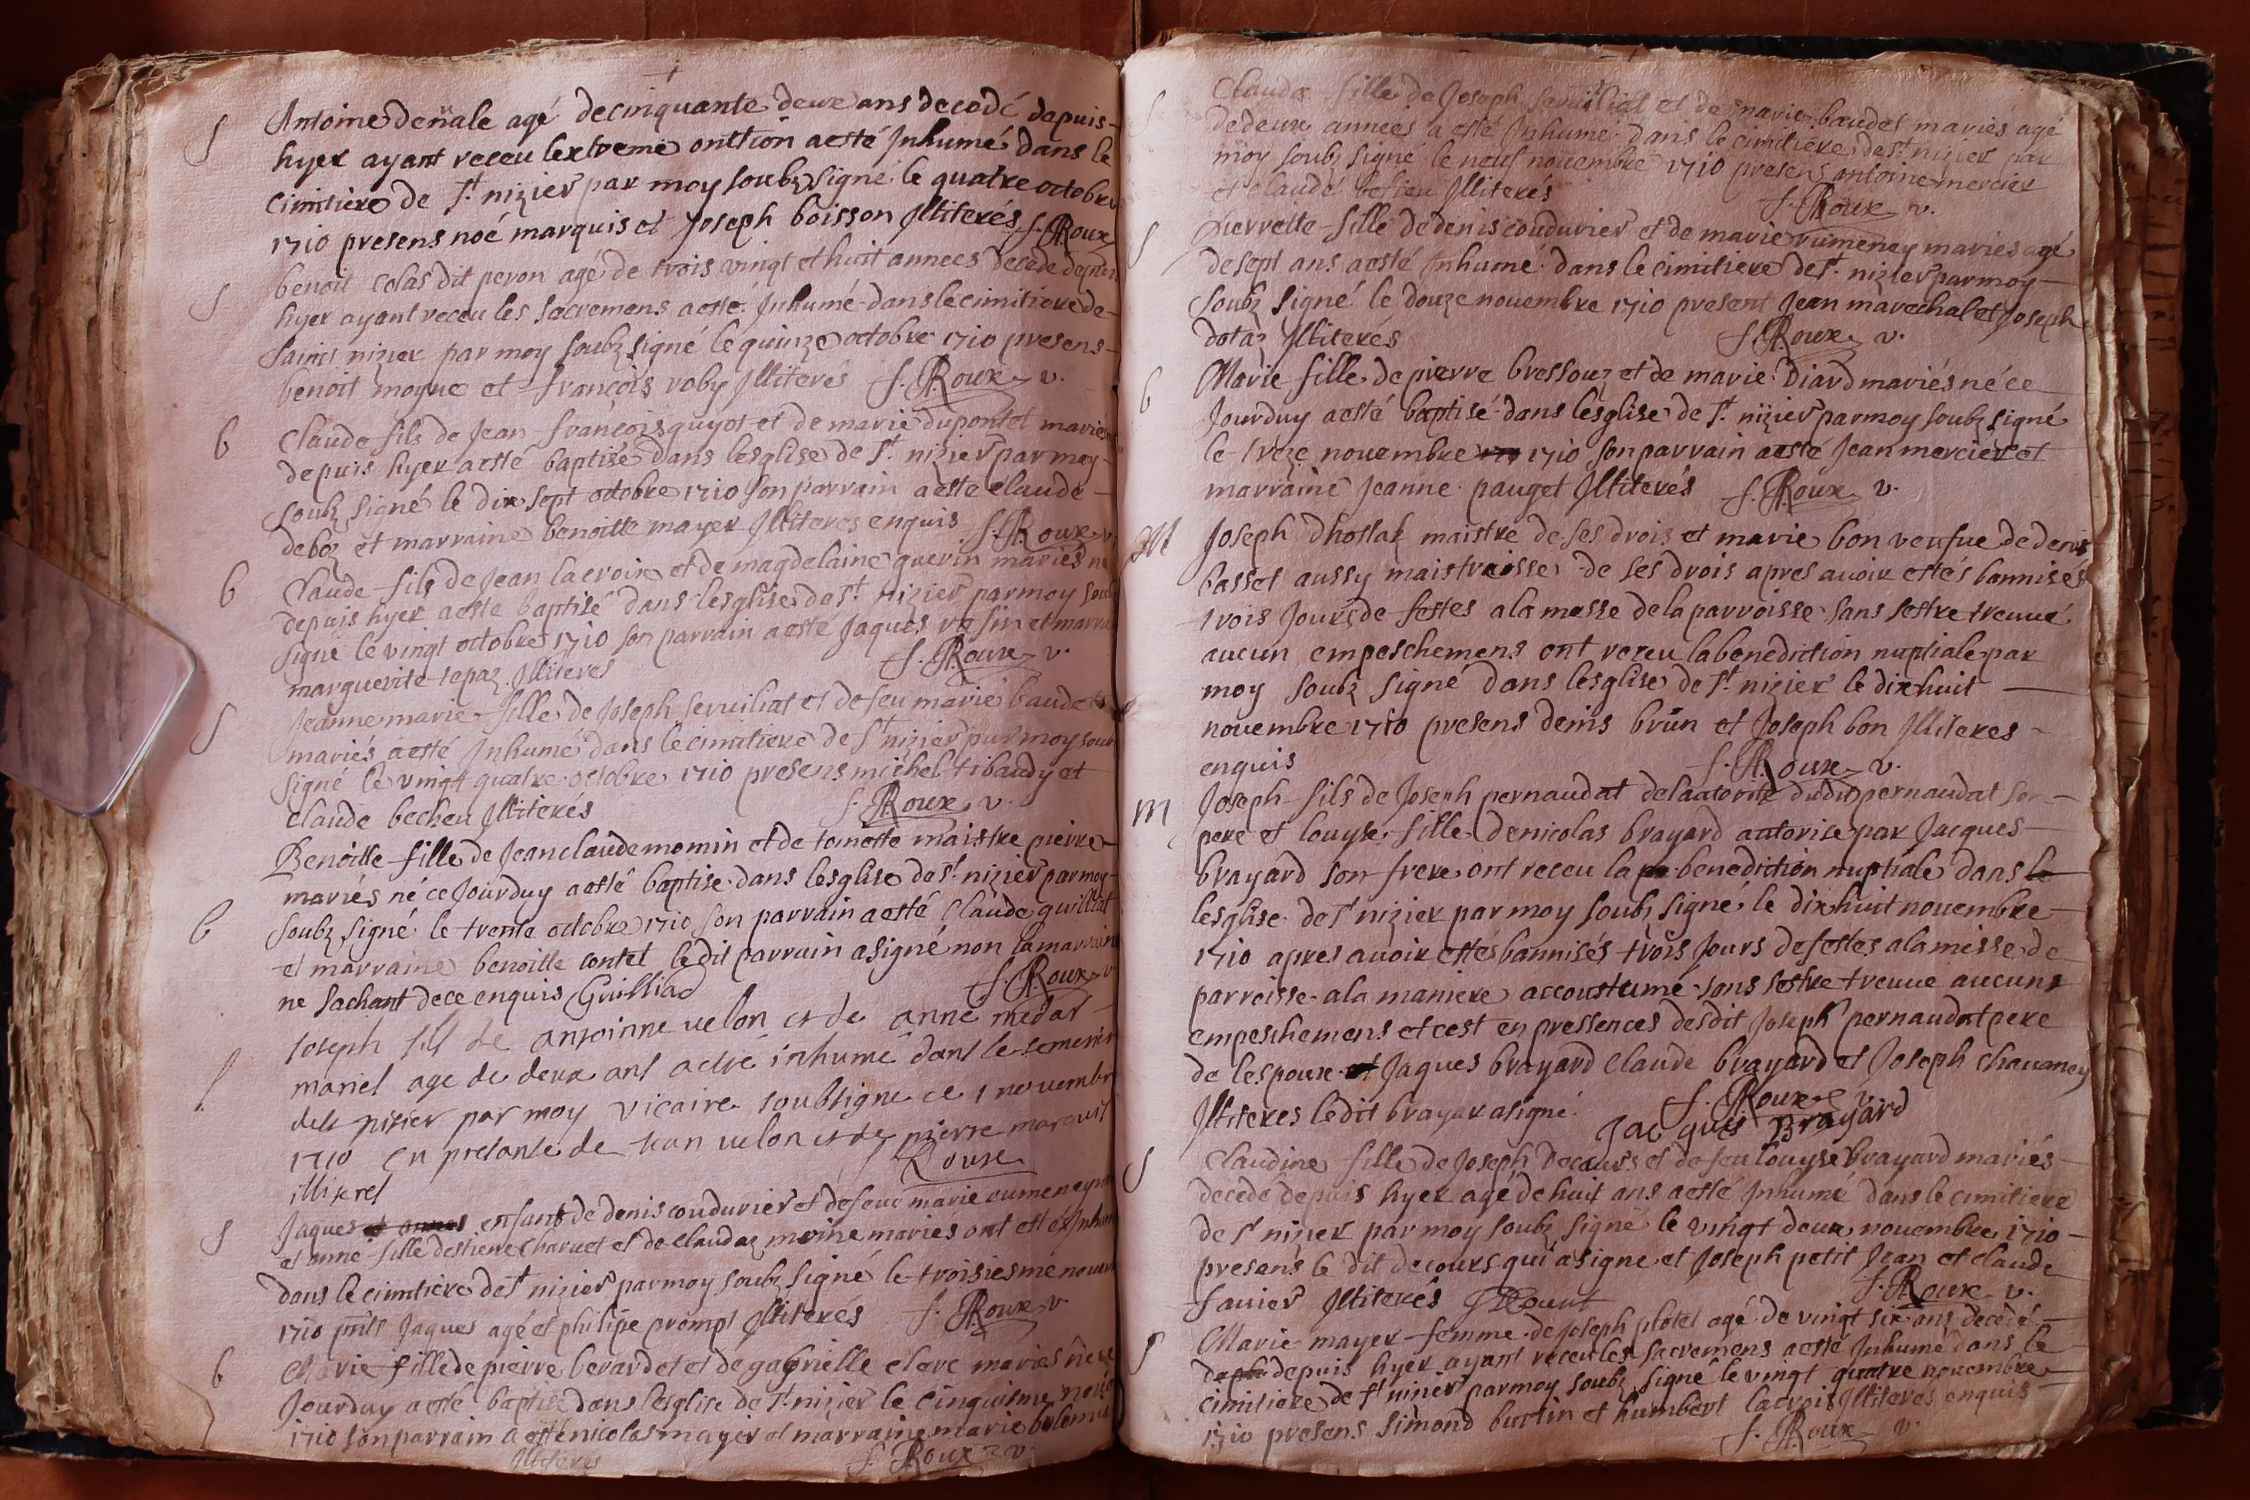 S
Antoine denale agé de cinquante deux ans decedé depuis
hyer ayant receu lextreme onttion aesté Inhumé dans le
cimitiere de St. nizier par moy soubz signé le quatre octobre
1710 presens noé marquis et Joseph boisson Illiterés f. Roux
S
benoit colas dit peron agé de trois vingt et huit annees decede depuis
hyer ayant receu les sacremens aesté Inhumé dans le cimitiere de
Sainct nizier par moy soubz signé le quinze octobre 1710 presens
benoit moque et françois roby Illiterés f. Roux v.
b
Claude fils de Jean françois guyot et de marie dupontet mariés
depuis hyer aesté baptisé dans lesglise de St. nizier par moy
soubz signé le dix sept octobre 1710 son parrain aesté claude
deboz et marraine benoitte mayer Illiteres enquis f. Roux v.
b
Claude fils de Jean lacroix et de magdelaine guerin mariés né
depuis hyer aesté baptisé dans lesglise de St. nizier par moy soubz
signé le vingt octobre 1710 son parrain aesté Jaques
marguerite tepaz Illiteres f. Roux v.
S
Jeanne marie fille de Joseph seruiliat et de feu marie baudet
mariés aesté Inhumé dans le cimitiere de St nizier par moy soubz
signé le vingt quatre octobre 1710 presens michel tibaudy et
claude becheu Illiterés f. Roux v.
b
Benoitte fille de Jean claude momin et de toinette maistre pierre
mariés né ce Jourduy aesté baptisé dans lesglise de St. nizier par moy
soubz signé le trente octobre 1710 son parrain aesté Claude guilliat
et marraine benoitte contet ledit parrain a signé non la marraine
ne sachant de ce enquis Guilliad f. Roux v
S
Joseph fil de antoinne uelon et de anne medal
mariel age de deux ans aetté inhumé dans le semetier
de st nizier par moy vicaire soubsigne ce 1 novembre
1710 en presance de Jean uelon et de pierre marquis
illiteres Roux
S
Jaques et annes enfant de denis coudurier et de feue marie rumeney
et anne fille destiene charuet et de claudaz moine mariés ont estés Inhumé
dans le cimitiere de St nizier par moy soubz signé le troisiesme nouem
1710 pnts Jaques agé et philipe prompt Illiterés f. Roux v.
b
Marie fille de pierre berardet et de gabrielle clerc mariés né ce
Jourduy aesté baptisé dans lesglise de St nizier le cinquisme
1710 son parrain a esté nicolas mayer et marraine marie bolomie
Illiteres f. Roux v.
S
Claudaz fille de Joseph seruiliat et de marie baudet mariés agé
de deux annees a esté Inhumé dans le cimitiere de St. nizier par
moy soubz signé le neuf nouembre 1710 presens antoine mercier
et claude Illiterés f. Roux v.
S
Pierrette fille de denis coudurier et de marie rumeney mariés agé
de sept ans aesté Inhumé dans le cimitiere de St. nizier par moy
soubz signé le douze nouembre 1710 present Jean marechal et Joseph
dotaz Illiterés f. Roux v.
b
Marie fille de pierre bressouz et de marie Diard mariés né ce
Jourduy aesté baptisé dans lesglise de St. nizier par moy soubz signé
le treze nouembre 1710 son parrain aesté Jean mercier et
marraine Jeanne pauget Illiterés f. Roux v.
M
Joseph Dhostaz maistre de ses drois et marie bon veufue de denis
basset aussy maistraisse de ses drois apres auoir estés bannisés
trois Jours de festes a la messe de la parroisse sans sestre treuué
aucun empeschemens ont receu la benediction nuptiale par
moy soubz signé dans lesglise de St. nizier le dix huit
nouembre 1710 presens denis brun et Joseph bon Illiteres
enquis f. Roux v.
M
Joseph fils de Joseph pernaudat de lautorité dudit pernaudat son
pere et louyse fille de nicolas brayard autorise par Jacques
brayard son frere ont receu la benediction nuptiale dans le
lesglise de St nizier par moy soubz signé le dix huit nouembre
1710 apres auoir estés bannisés trois Jours de festes a la messe de
parroisse a la maniere accoustumé sans sestre treuue aucuns
empeschemens et cest en pressences desdit Joseph pernaudat pere
de lespoux et Jaques brayard claude brayard et Joseph chauaney
Illiteres ledit brayar a signé f. Roux v.
Jacques Brayard
S
Claudine fille de Joseph Decours et de feu louyse brayard mariés
decede depuis hyer agé de huit ans aesté Inhumé dans le cimitiere
de St nizier par moy soubz signé le vingt deux nouembre 1710
presans le dit decours qui a signe et Joseph petit Jean et claude
fauier Illiterés f. Roux v.
S
Marie mayer femme de Joseph plotet agé de vingt six ans decedé
depuis hyer ayant receu les sacremens aesté Inhumé dans le
cimitiere de St nizier par moy soubz signé le vingt quatre nouembre
1710 presens simond burtin et humbert lacroix Illiteres enquis
f. Roux v.